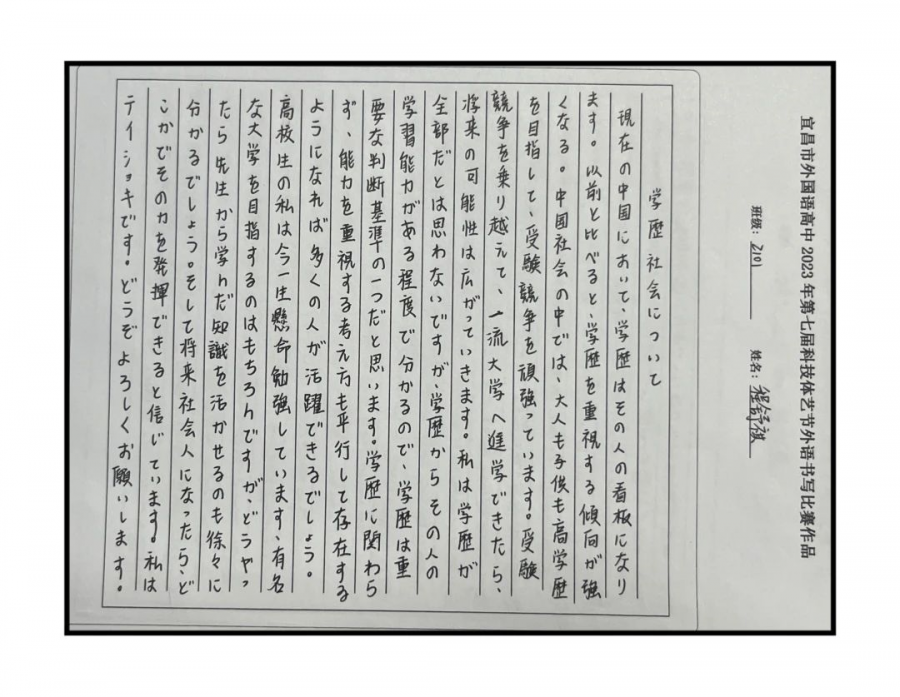 宜昌市外国语高中 2023 年第七届科技体艺节外语书写比赛作品
班级：2101 姓名：程舒祺
学歴社会について
現在の中国において、学歴はその人の看板になり
ます。以前と比べると、学歴を重視する傾向が強
くなる。中国社会の中では、大人も子供も高学歴
を目指して、受験競争を頑強っています。受験
競争を乗り越えて、一流大学へ進学できたら、
将来の可能性は広がっていきます。私は学歴が
全部だとは思わないですが、学歴からその人の
学習能力がある程度で分かるので、学歴は重
要な判断基準の一つだと思います。学歴に関わら
ず、能力を重視する考え方も平行して存在する
ようになれば多くの人が活躍できるでしょう。
高校生の私は今一生懸命勉強しています、有名
な大学を目指するのはもちろんですが、どうやっ
たら先生から学んだ知識を活かせるのも徐々に
分かるでしょう。そして将来社会人になったら、ど
こかでその力を発揮できると信じています。私は
テイショキです。どうぞよろしくお願いします。